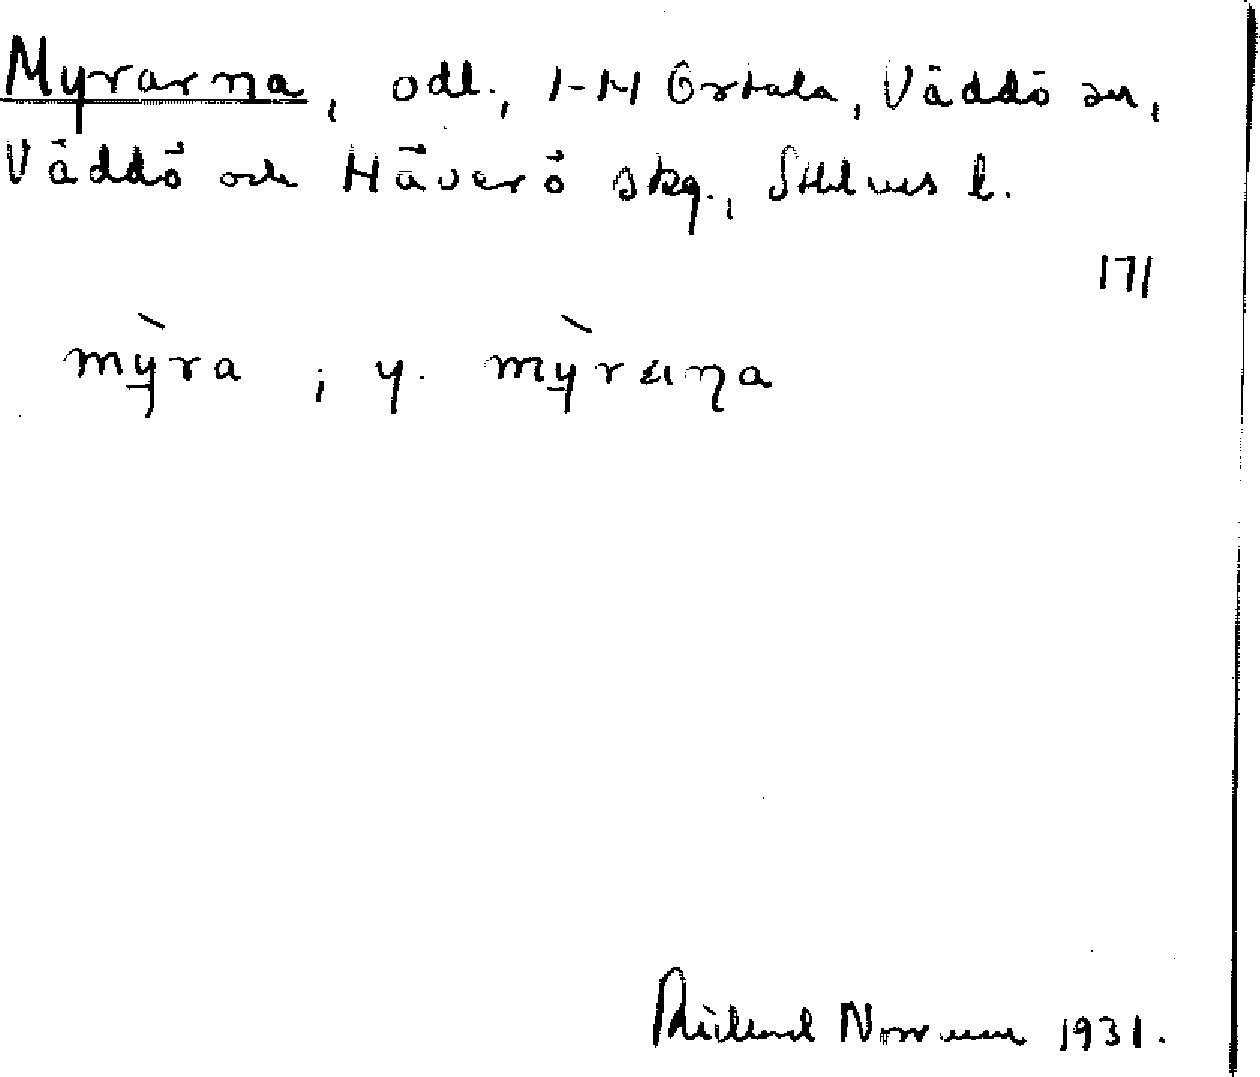 Myrarna, odl., 1-14 Ortala, Väddö sn,
Väddö och Häverö skg., Sthlms l.
171
mỳ̠ra ; y. mỳ̠raŋa
Rickard Norrman 1931.